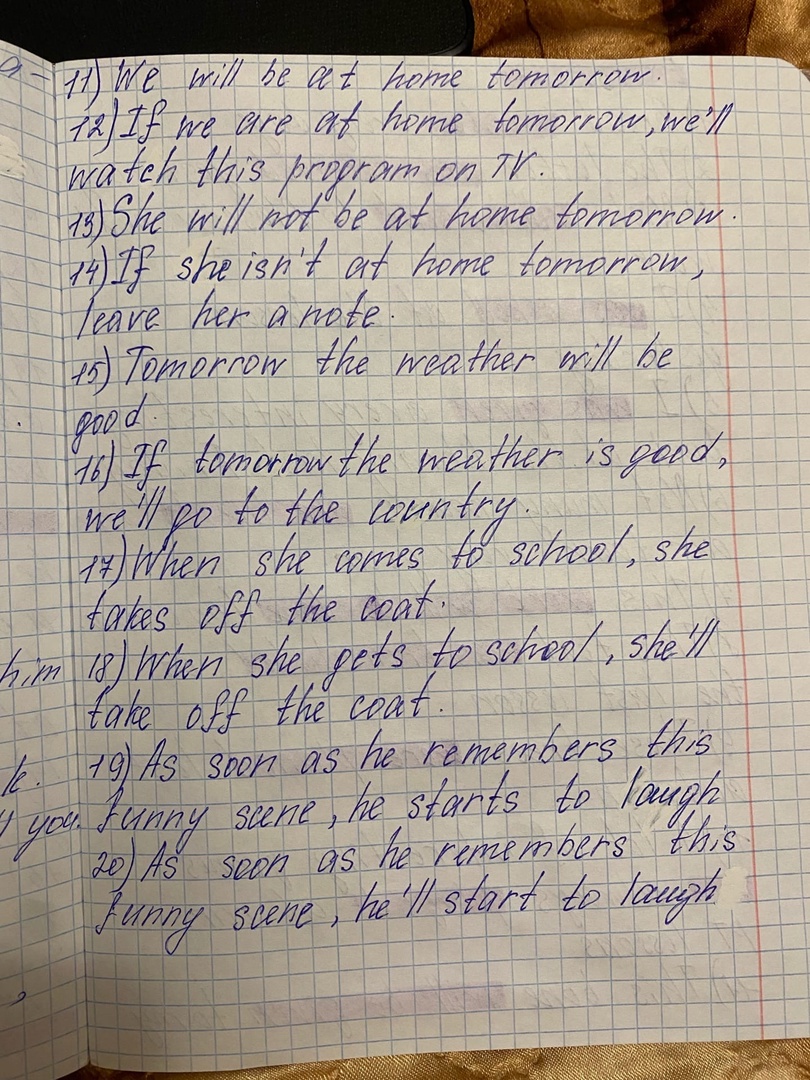 11) We will be at home tomorrow.
12) If we are at home tomorrow, we'll
watch this program on TV.
13) She will not be at home tomorrow.
14) If she isn't at home tomorrow,
leave her a note.
15) Tomorrow the weather will be
good.
16) If tomorrow the weather is good,
we'll go to the country.
17) When she comes to school, she
takes off the coat.
him
18) When she gets to school, she'll
take off the coat.
19) As soon as he remembers this
you.
funny scene, he starts to laugh
20) As soon as he remembers this
funny scene, he'll start to laugh